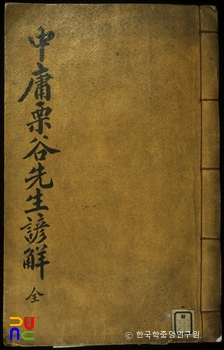 中庸栗谷先生諺解 全
PUNC
© 한국학중앙연구원